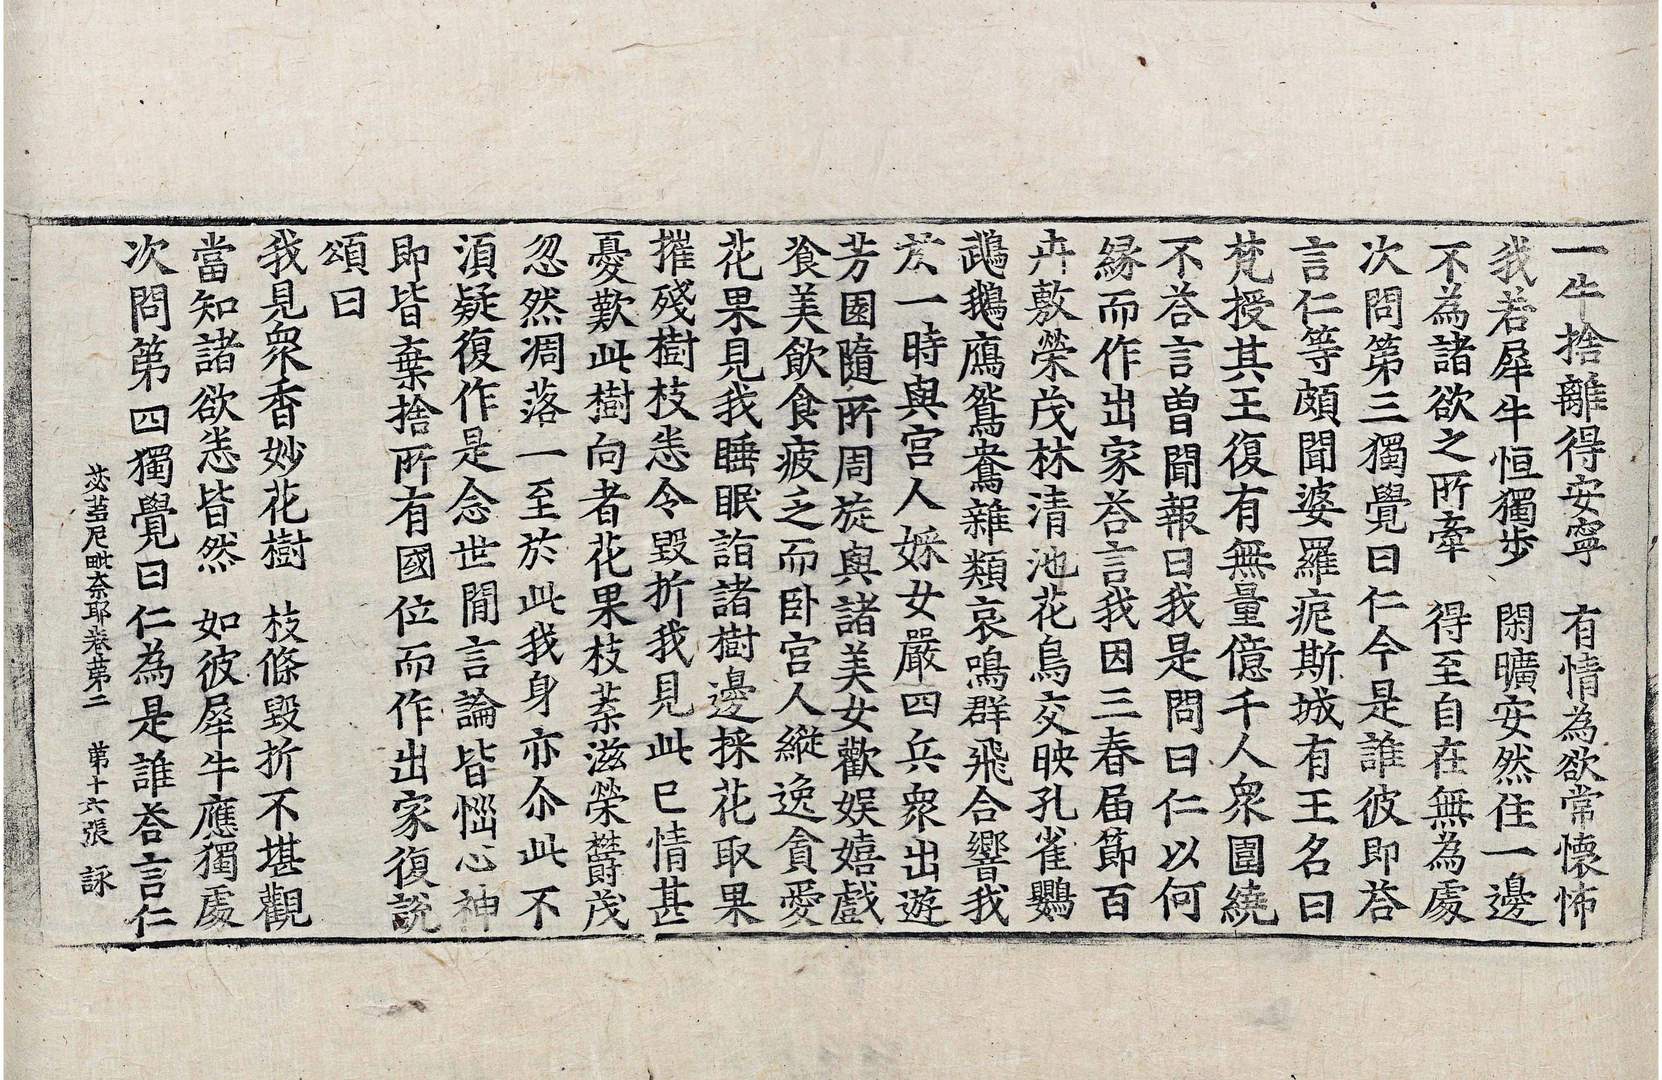 一牛捨離得安寧　有情為欲常懷怖
我若犀牛恒獨步　閑曠安然住一邊
不為諸欲之所牽　得至自在無為處
次問第三獨覺曰仁今是誰彼即荅
言仁等頗聞婆羅痆斯城有王名曰
梵授其王復有無量億千人衆圍繞
不荅言曽聞報曰我是問曰仁以何
緣而作出家荅言我因三春届節百
卉敷榮茂林清池花鳥交映孔雀鸚
鵡鵝鴈鴛鴦雜類哀鳴群飛合響我
於一時與宮人婇女嚴四兵衆出遊
芳園隨所周旋與諸美女歡娱嬉戲
飡美飲食疲乏而卧宮人縱逸貪愛
花果見我睡眠詣諸樹邊採花取果
摧殘樹枝悉令毀折我見此已情甚
憂歎此樹向者花果枝葉滋榮欝茂
忽然凋落一至於此我身亦尒此不
須疑復作是念世間言論皆惱心神
即皆棄捨所有國位而作出家復說
頌曰
我見衆香妙花樹　枝條毀折不堪觀
當知諸欲悉皆然　如彼犀牛應獨處
次問第四獨覺曰仁為是誰荅言仁
苾芻尼毗奈耶卷第二　第十六張　詠